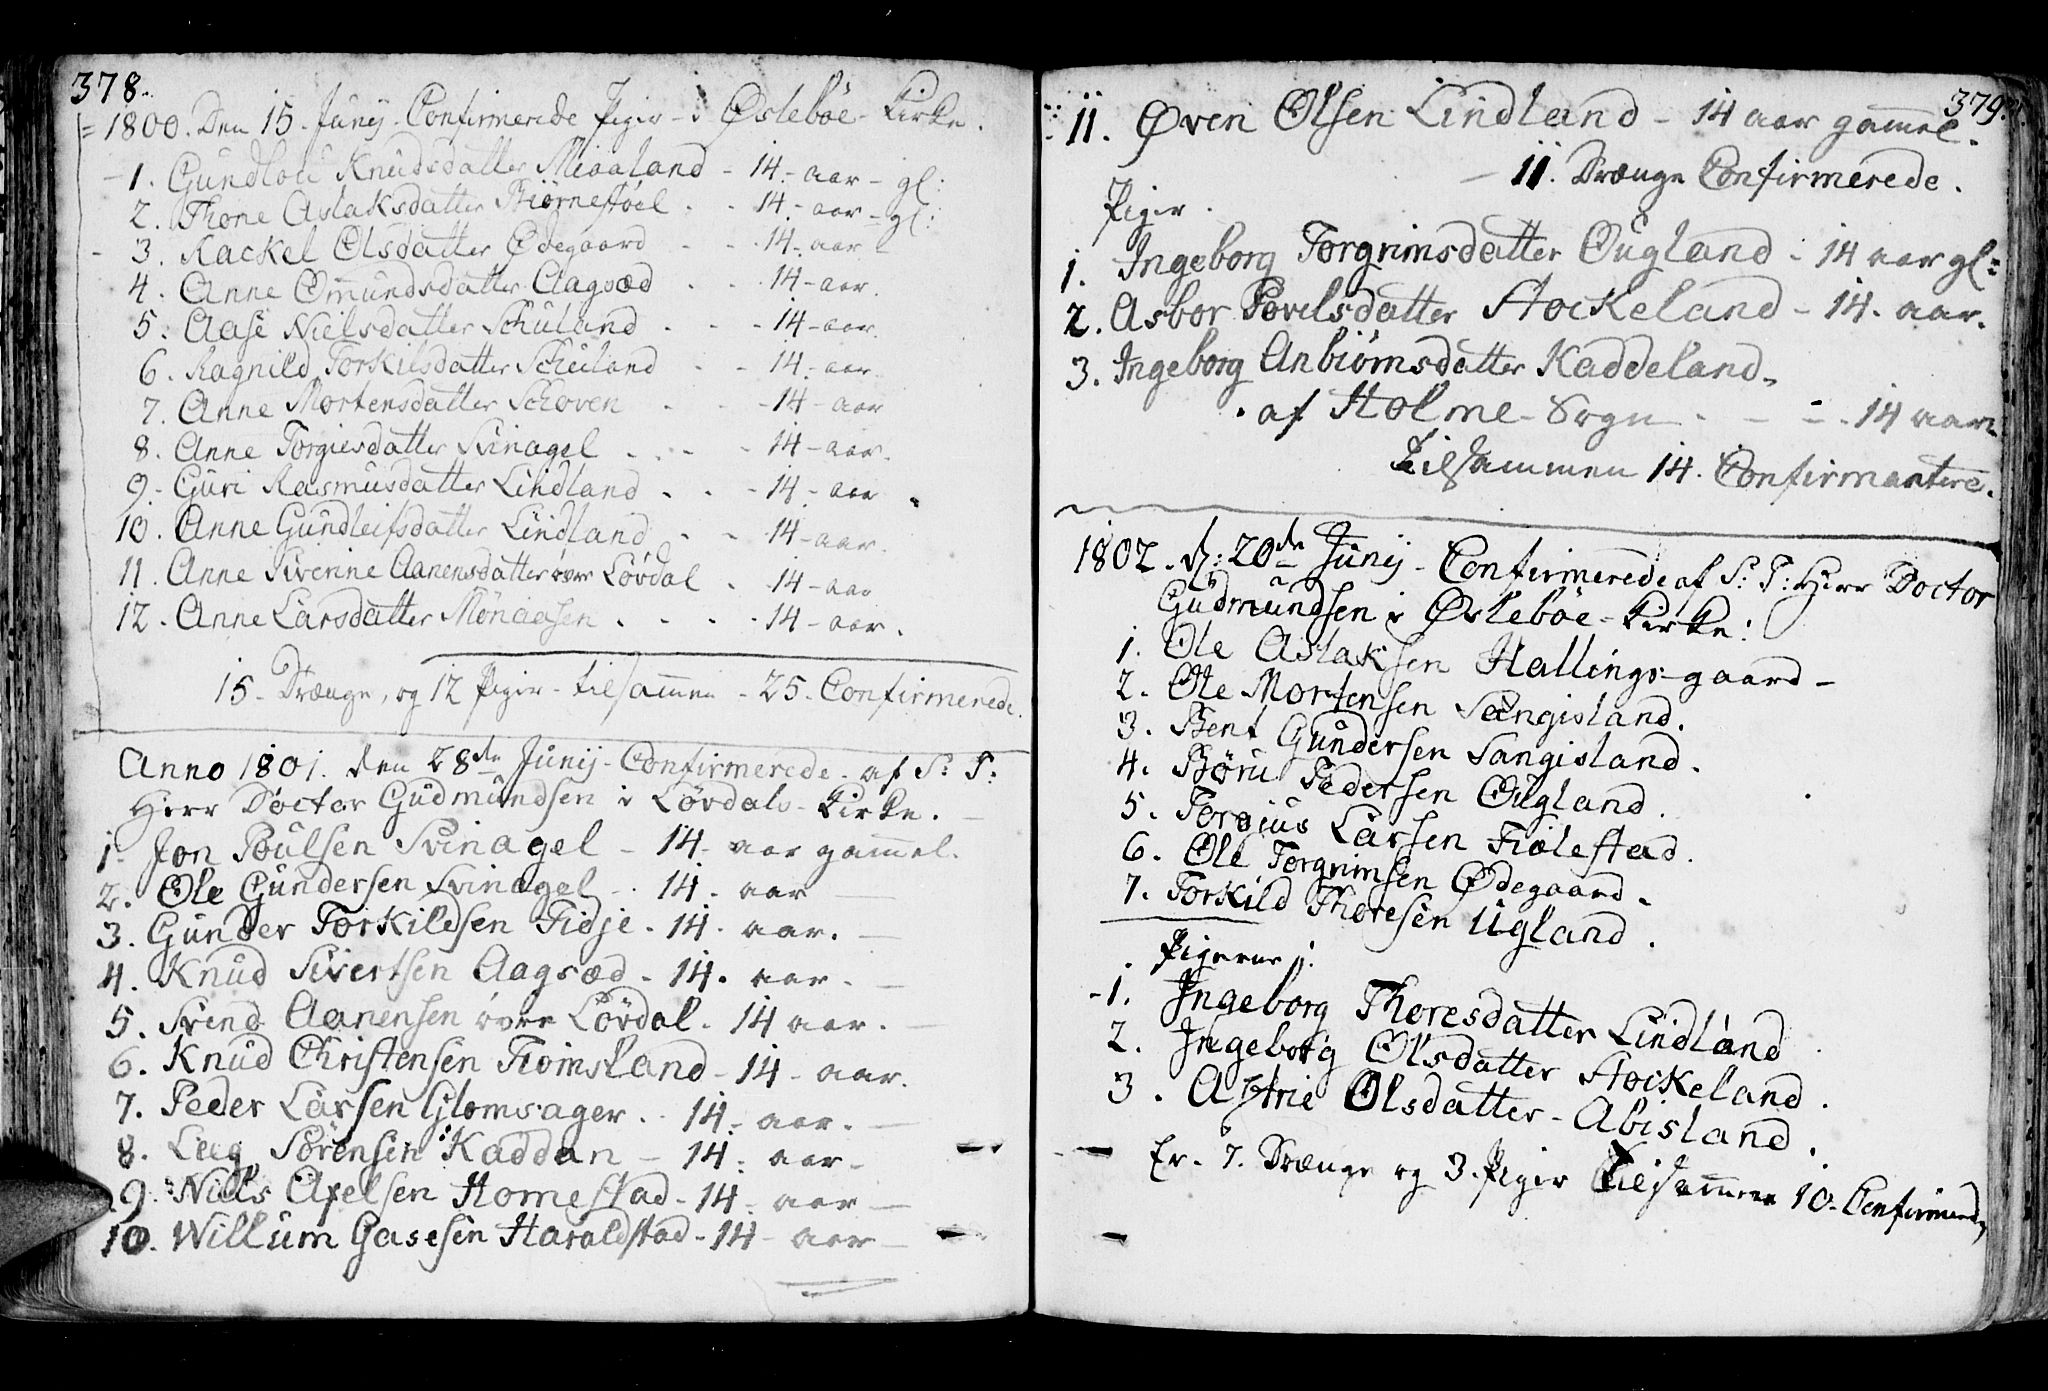 378.
= 1800. Den 15. Junij. Confirmerede Piger i Øslebøe Kirke.
1. Gundlou Knudsdatter Miaaland - 14 - aar - gl:
2. Thone Aslaksdatter Biørnestøel - 14 - aar - gl:
3. Rackel Olsdatter Ødegaard - 14 - aar
4. Anne Omundsdatter Aagsæd - 14 - aar.
5. Aase Nielsdatter Schuland - 14 - aar.
6. Ragnild Torkilsdatter Schuland - 14 - aar.
7. Anne Mortensdatter Schoven - 14 - aar
8. Anne Torgiesdatter Svinagel - 14 - aar.
9. Guri Rasmusdatter Lindland - 14 - aar
10. Anne Gundleifsdatter Lindland - 14 - aar.
11. Anne Siverine Aanensdatter øvre Løvdal - 14 - aar
12. Anne Larsdatter Mønaasen - 14 - aar.
15. Drænge, og 12 Piger - tilsammen - 25. Confirmerede.
Anno 1801. den 28de Junij - Confirmerede af S: P:
Herr Doctor Gudmundsen i Løvdals - Kirke.
1. Jon Poulsen Svinagel - 14 - aar gammel.
2. Ole Gundersen Svinagel - 14. aar
3. Gunder Torkildsen Fidje - 14. aar.
4. Knud Sivertsen Aagsæd - 14. aar.
5. Svend Aanensen øvre Løvdal. 14 aar.
6. Knud Christensen Fiomsland - 14 - aar.
7. Peder Larsen Glomsager. 14 - aar.
8. Laug Sørensen Kaddan - 14. aar.
9. Niels Axelsen Homestad - 14. aar
10. Willum Gasesen Haraldstad - 14 - aar
379.
11. Øven Olsen Lindland - 14 aar gammel.
11. Drænge Confirmerede.
Piger.
1. Ingeborg Torgrimsdatter Øugland - 14 aar gl:
2. Asbor Povelsdatter Stockeland - 14. aar.
3. Ingeborg Anbiømsdatter Kaddeland
af Holme - Sogn - 14 aar.
Tilsammen 14. Confirmantere.
1802. d: 20de Junij - Confirmerede af S: P: Herr Doctor
Gudmundsen i Øslebøe - Kirke:
1. Ole Aslaksen Hallings-gaard -
2. Ole Mortensen Sangisland.
3. Bent Gundersen Sangisland.
4. Børu Pedersen Øugland.
5. Torgius Larsen Fiølestad.
6. Ole Torgrimsen Ødegaard.
7. Torkild Thoresen Ugland.
Pigerne:
1. Ingeborg Thoresdatter Lindland
2. Ingeborg Olsdatter Stockeland.
3. Astrie Olsdatter - Abisland.
Er. 7. Drænge og 3. Piger Tilsammen 10. Confirmerede